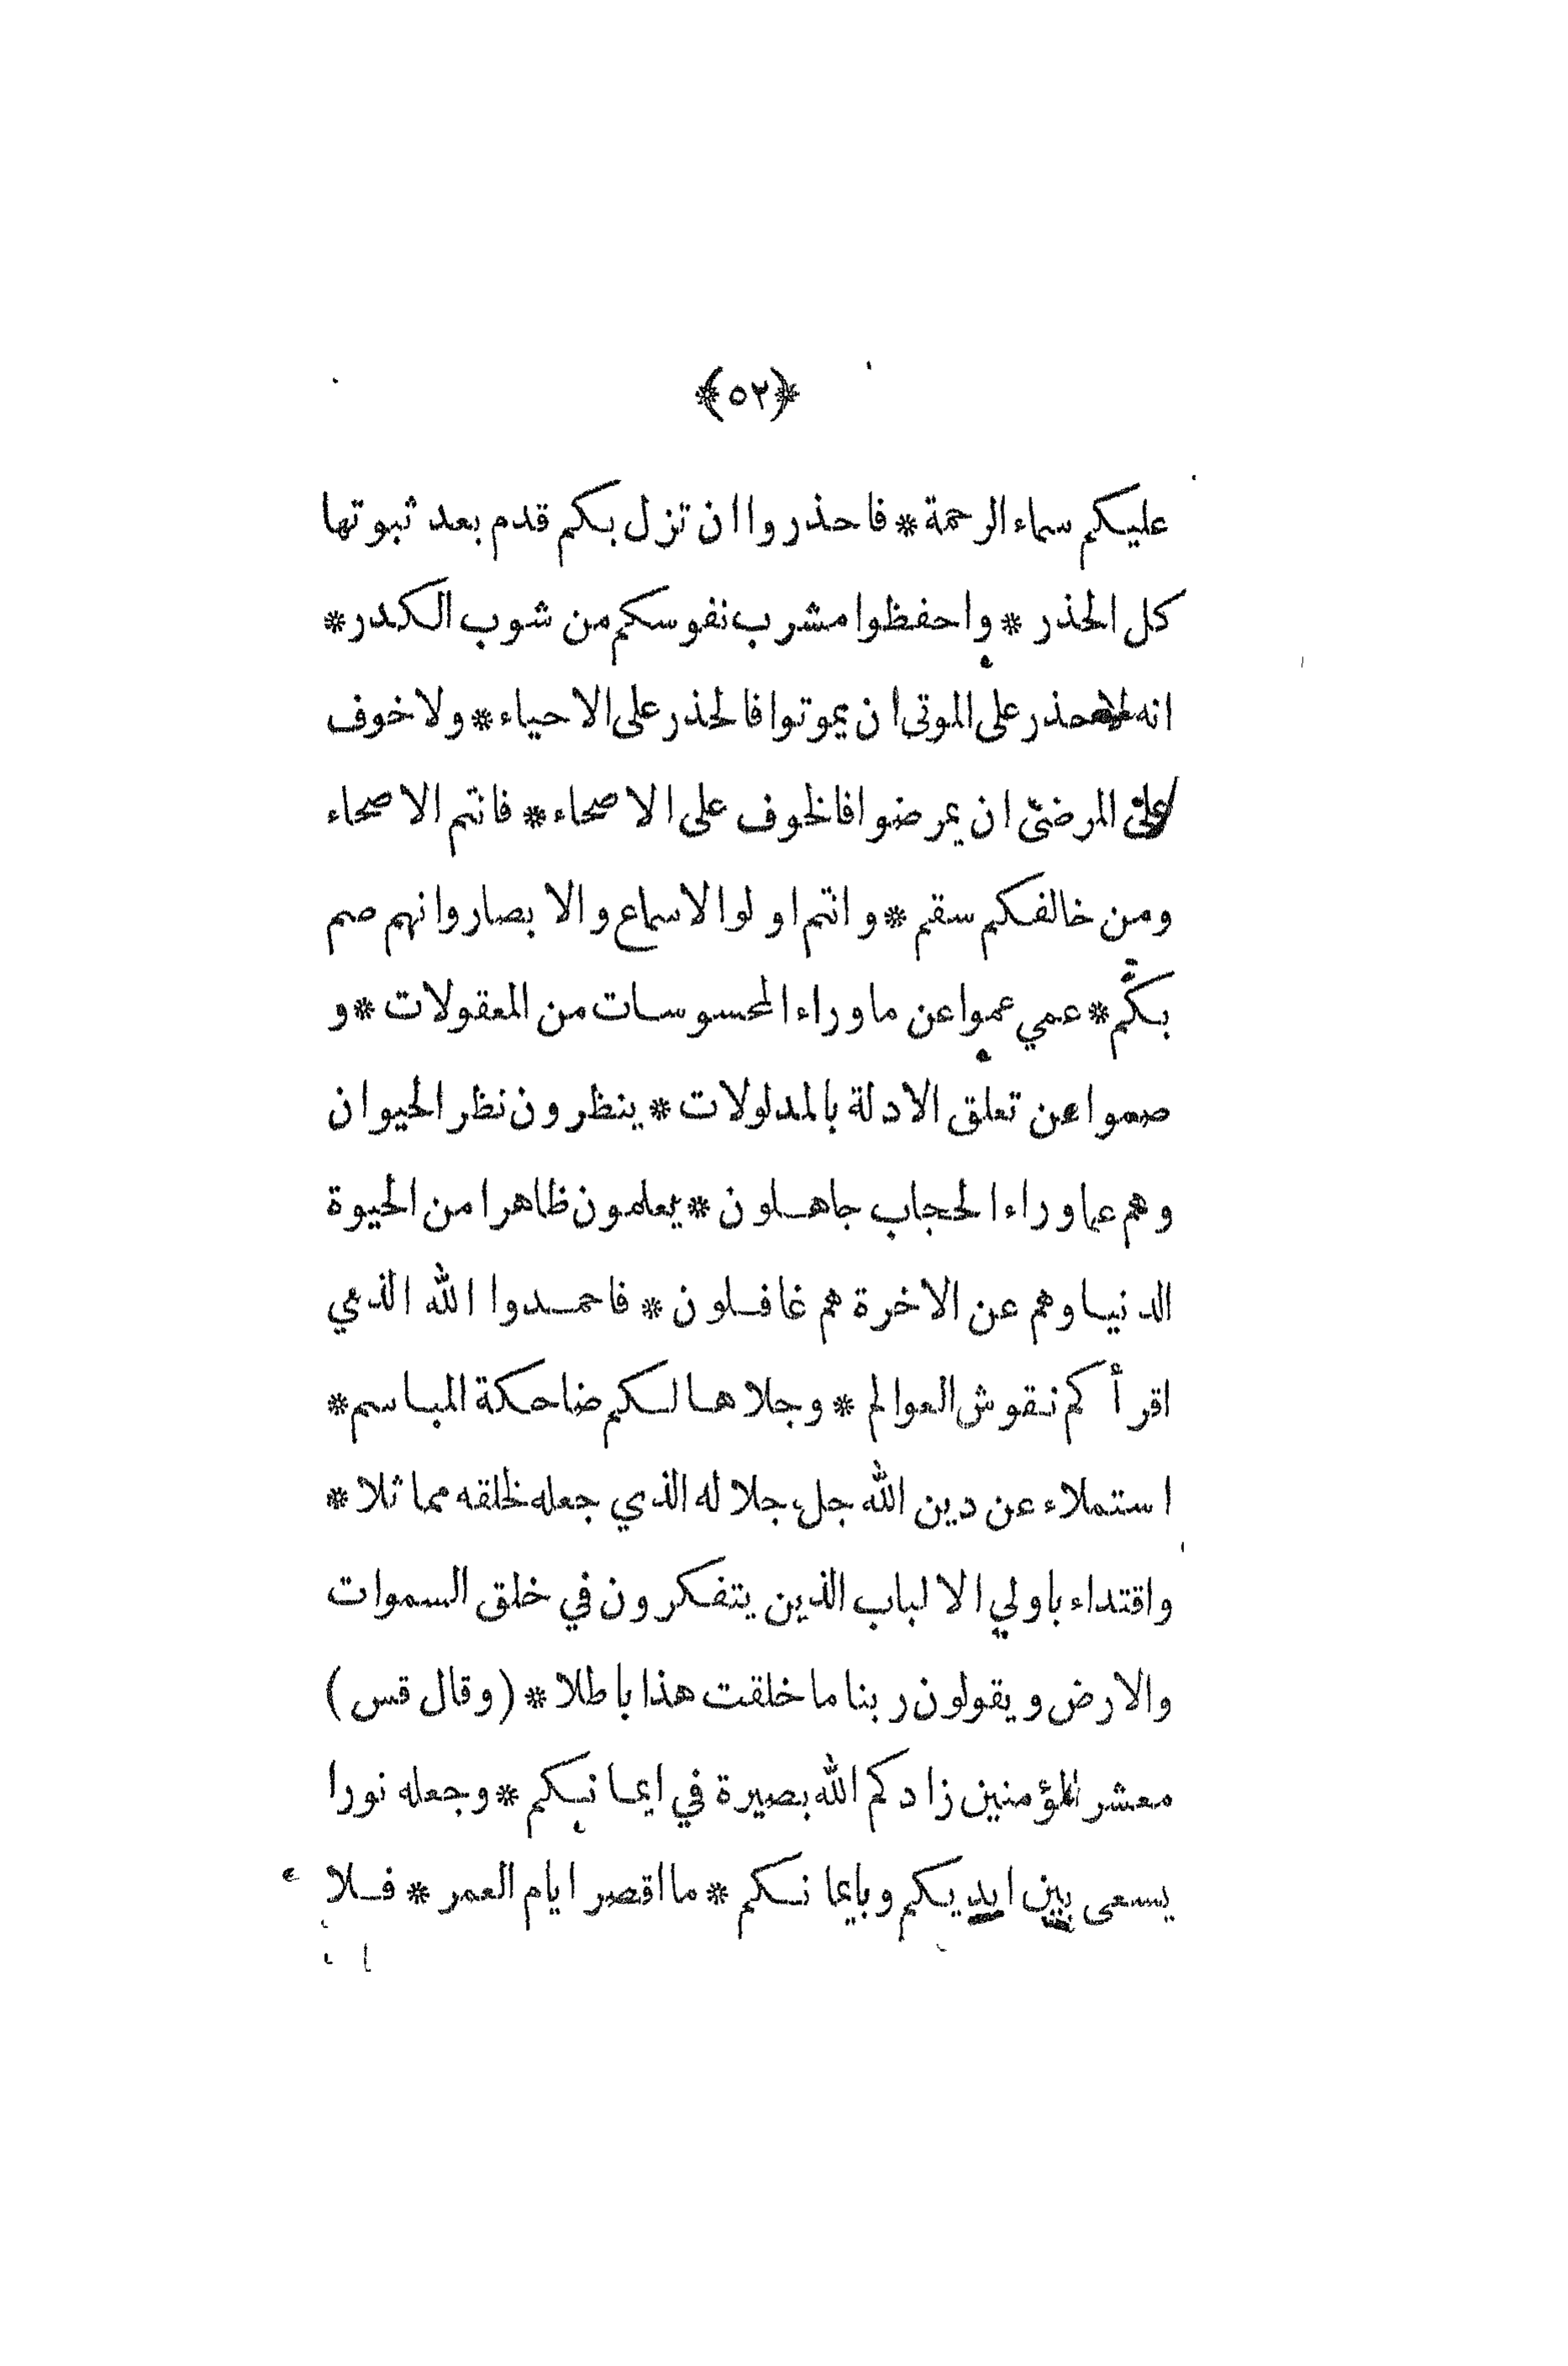 ﴿٥٢﴾
عليكم سماء الرحمة * فاحذروا ان تزل بكم قدم بعد ثبوتها
كل الحذر * واحفظوا مشرب نفوسكم من شوب الكدر *
انه لا حذر على الموتى ان يموتوا فالحذر على الاحياء * ولا خوف
على المرضى ان يمرضوا فالخوف على الاصحاء * فانتم الاصحاء
ومن خالفكم سقم * وانتم اولوا الاسماع والابصار وانهم صم
بكم * عمي عموا عن ما وراء المحسوسات من المعقولات * و
صموا عن تعلق الادلة بالمدلولات * ينظرون نظر الحيوان
وهم عما وراء الحجاب جاهلون * يعلمون ظاهرا من الحيوة
الدنيا وهم عن الاخرة هم غافلون * فاحمدوا الله الذي
اقرأكم نقوش العوالم * وجلاها لكم ضاحكة المباسم *
استملاء عن دين الله جل جلاله الذي جعله لخلقه مماثلا *
واقتداء باولي الالباب الذين يتفكرون في خلق السموات
والارض ويقولون ربنا ما خلقت هذا باطلا * (وقال قس)
معشر المؤمنين زادكم الله بصيرة في ايمانكم * وجعله نورا
يسعى بين ايديكم وبايمانكم * ما اقصر ايام العمر * فلا